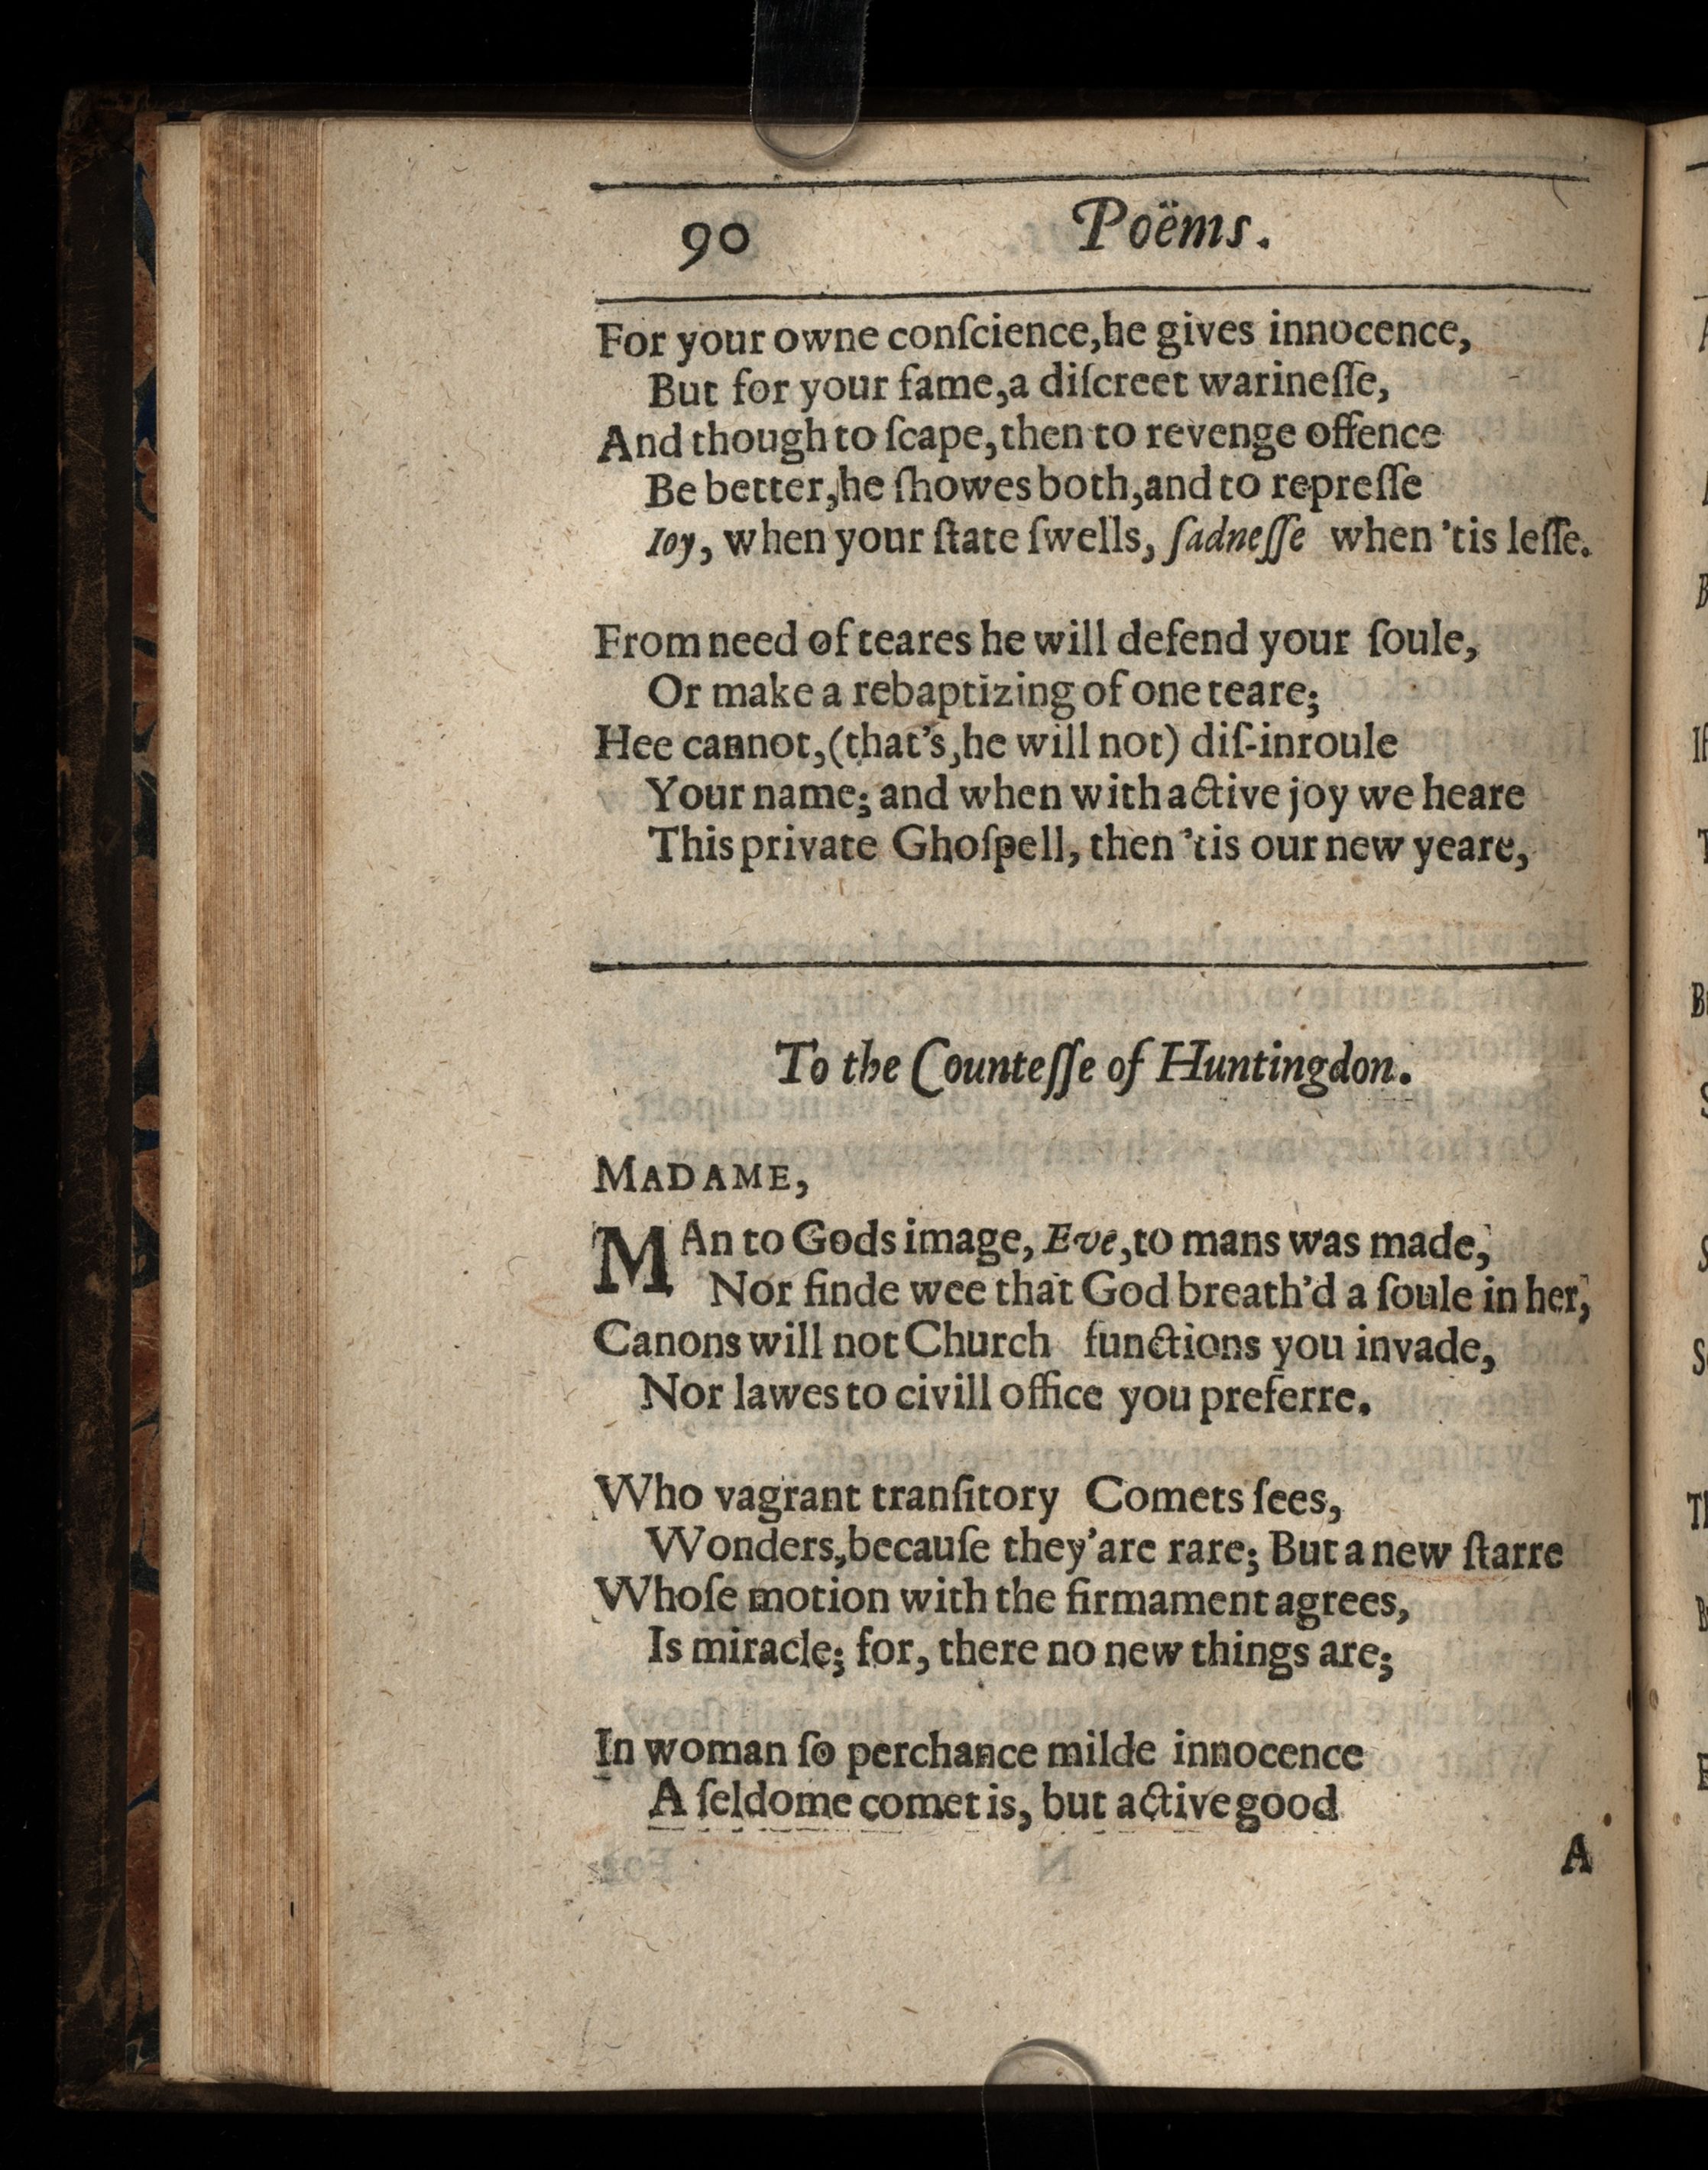 90 Poëms.
For your owne conſcience,he gives innocence,
But for your fame,a diſcreet warineſſe,
And though to ſcape,then to revenge offence
Be better,he ſhowes both,and to repreſſe
Ioy, when your ſtate ſwells, ſadneſſe when 'tis leſſe.
From need of teares he will defend your ſoule,
Or make a rebaptizing of one teare;
Hee cannot,(that's,he will not) diſ-inroule
Your name; and when with active joy we heare
This private Ghoſpell, then 'tis our new yeare,
To the Counteſſe of Huntingdon.
MADAME,
MAn to Gods image, Eve,to mans was made,
Nor finde wee that God breath'd a ſoule in her,
Canons will not Church functions you invade,
Nor lawes to civill office you preferre.
Who vagrant tranſitory Comets ſees,
Wonders,becauſe they'are rare; But a new ſtarre
Whoſe motion with the firmament agrees,
Is miracle; for, there no new things are;
In woman ſo perchance milde innocence
A ſeldome comet is, but active good
A